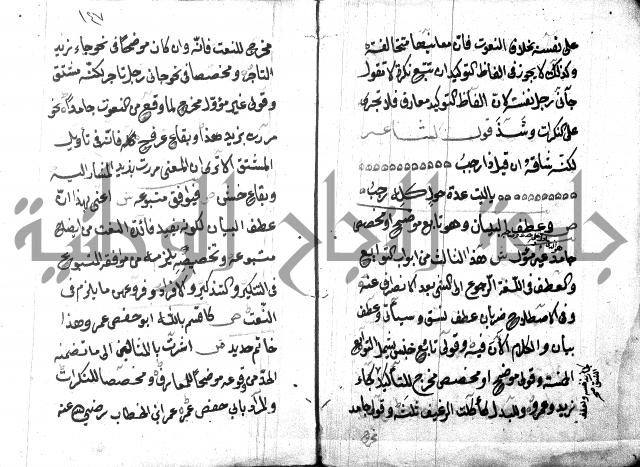 على نفسه بخلاف النعوت فان معانيها متخالفة
وكذلك لا يجوز في الفاظ التوكيد ان تتبع نكرة لا تقول
جاءني رجل نفسه لان الفاظ التوكيد معارف فلا تجري
على النكرات وشذ قول الشاعر
لكنه شاقه ان قيل ذا رجب
يا ليت عدة حول كله رجب
ص وعطف البيان وهو تابع موضح او مخصص
جامد غير مؤول ش هذا الثالث من ابواب التوابع
والعطف في اللغة الرجوع الى الشئ بعد الانصراف عنه
وفي الاصطلاح ضربان عطف نسق وسيأتي وعطف
بيان والكلام الان فيه وقولي تابع جنس يشمل التوابع
الخمسة وقولي موضح او مخصص مخرج للتأكيد كجاء
زيد وعمرو وللبدل كأكلت الرغيف ثلثه وقولي جامد
مخرج
١٤٧
مخرج للنعت فانه وان كان موضحا في نحو جاء زيد
التاجر ومخصصا في نحو جاءني رجل تاجر لكنه مشتق
وقولي غير مؤول مخرج لما وقع من النعوت جامدا نحو
مررت بزيد هذا وبقاع عرفج كله فانه في تأويل
المشتق الا ترى ان المعنى مررت بزيد المشار اليه
وبقاع خشن ص فيوافق متبوعه ش اعني بهذا ان
عطف البيان لكونه يفيد فائدة النعت من ايضاح
متبوعه وتخصيصه يلزمه من موافقة المتبوع
في التنكير والتذكير والافراد وفروعهن ما يلزم في
النعت ص كاقسم بالله ابو حفص عمر وهذا
خاتم حديد ش اشرت بالمثالين الى ما تضمنه
الحد من وقوعه موضحا للمعارف ومخصصا للنكرات
والمراد بابي حفص عمر بن الخطاب رضي الله عنه
جامعة النجاح الوطنية